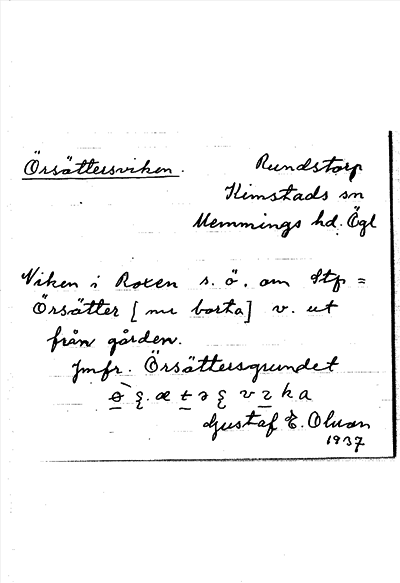 Örsättersviken.
Rundstorp
Kimstads sn
Memmings hd. Ögl
Viken i Roxen s. ö. om Stp =
Örsätter [nu borta] v. ut
från gården.
Jmfr. Örsättersgrundet
Gustaf E. Olson
1937